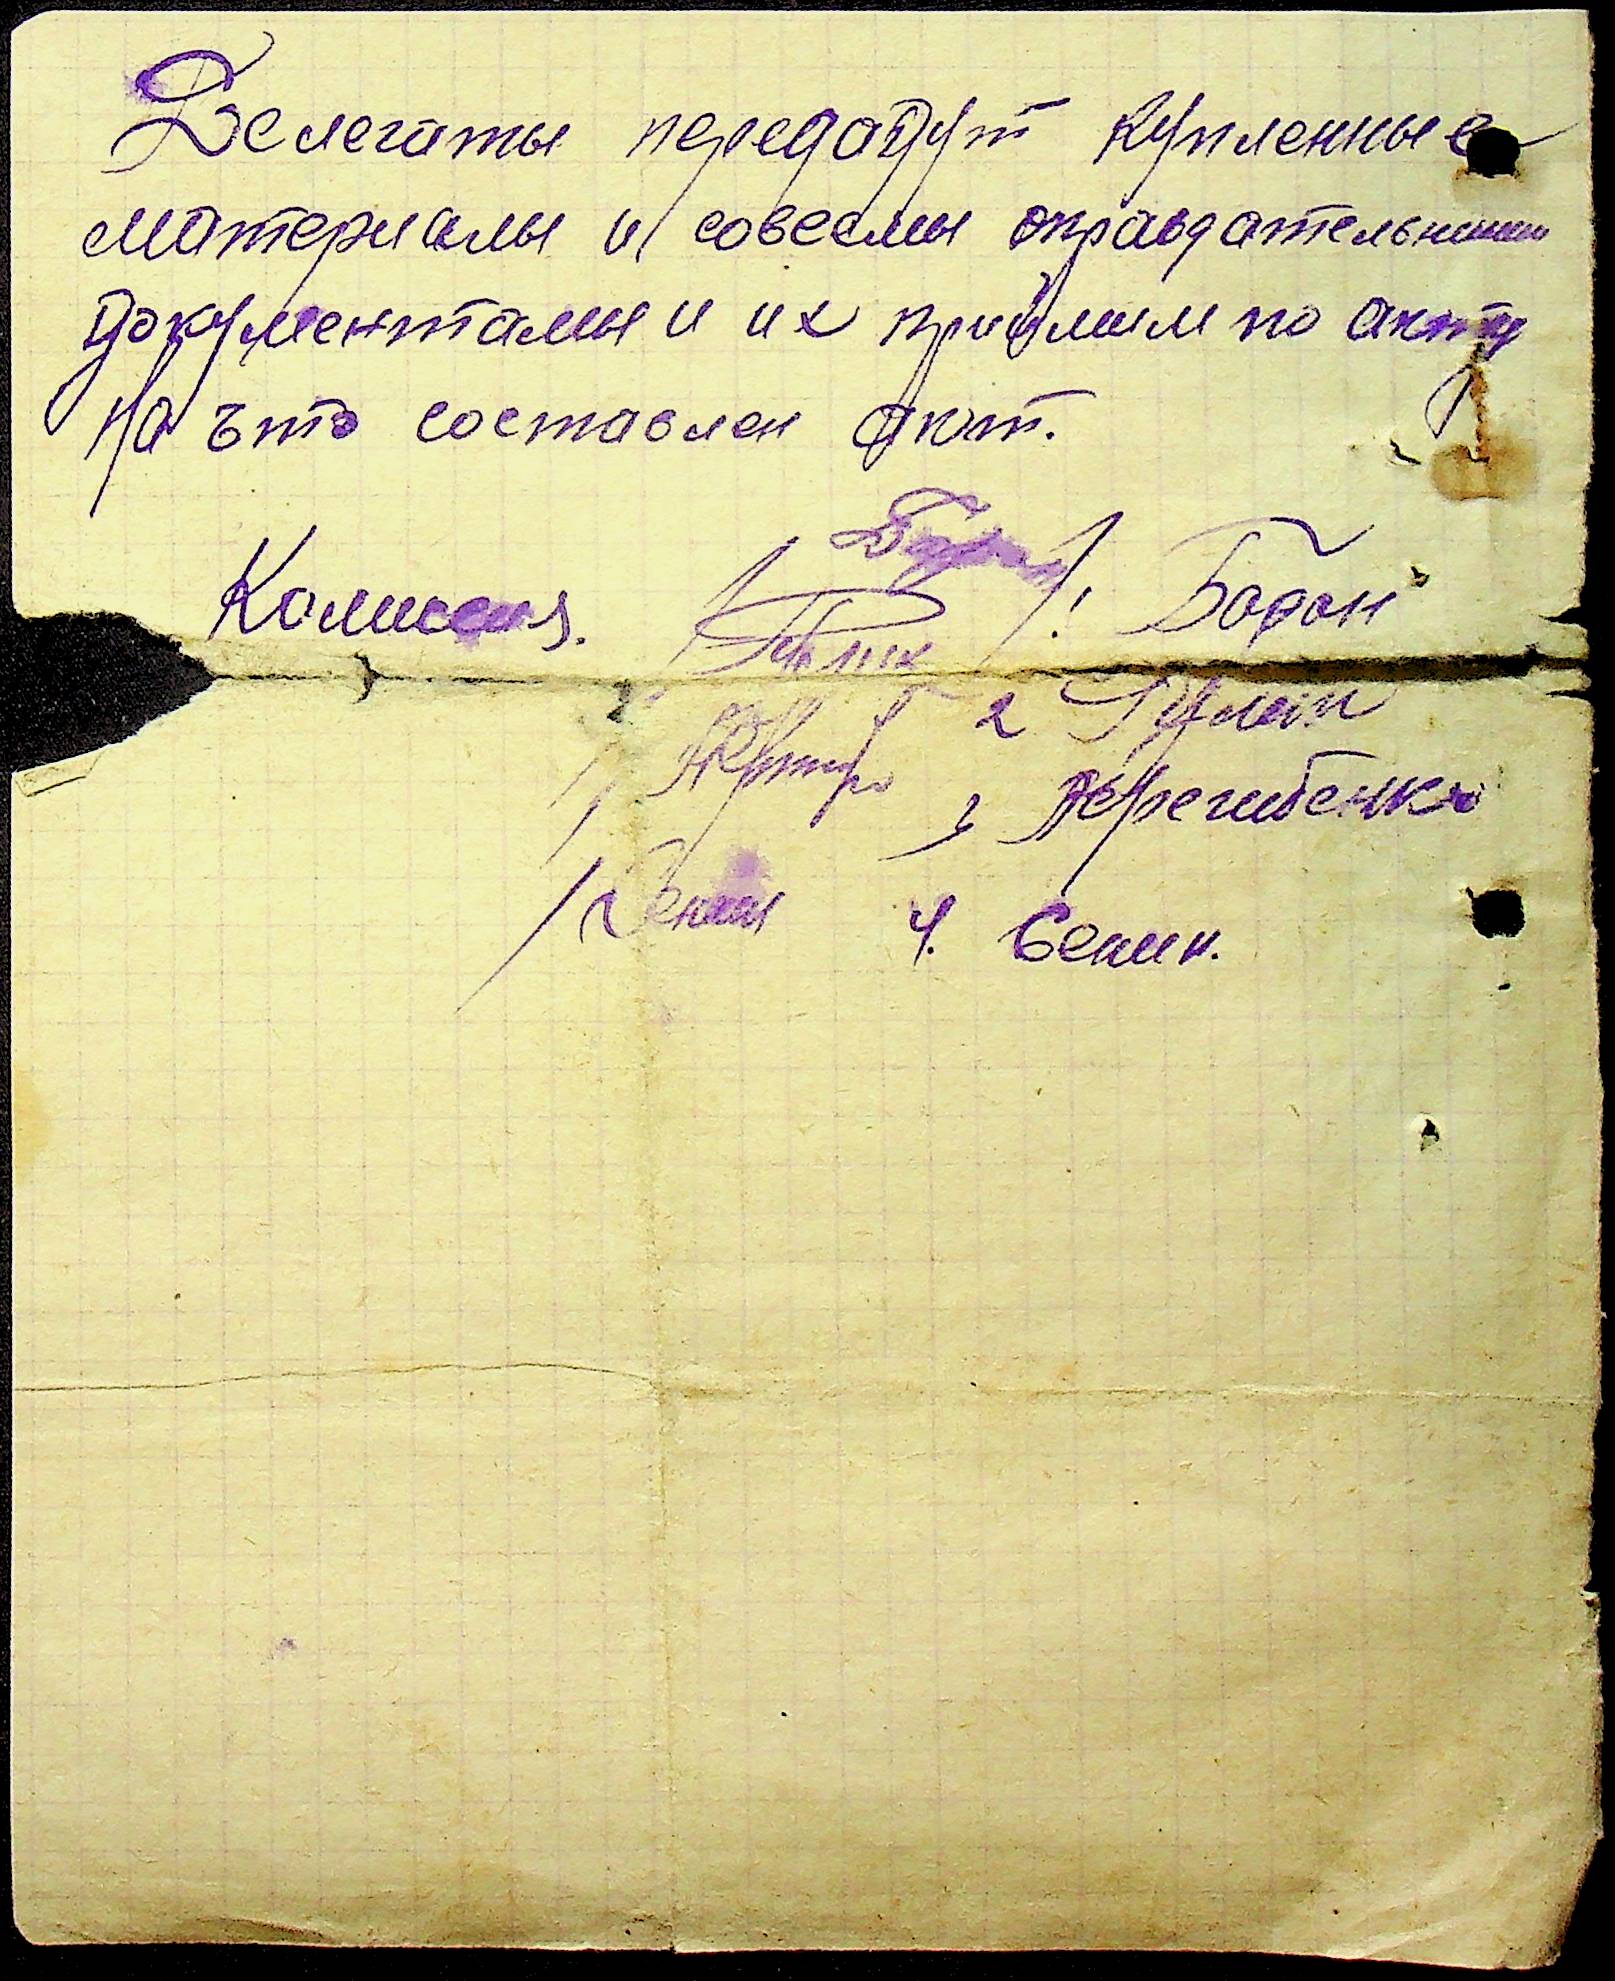 Делегаты передадут купленные
материалы и совсемы оправдательными
документамы и их приймим по акту
На ъто составлен акт.
Комиссия. 1. Бодон
2 Гулеи
3 Негребенко
4. Сенин.